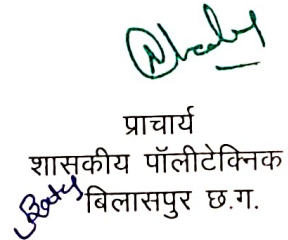 प्राचार्य
शासकीय पॉलीटेक्निक
बिलासपुर छ.ग.